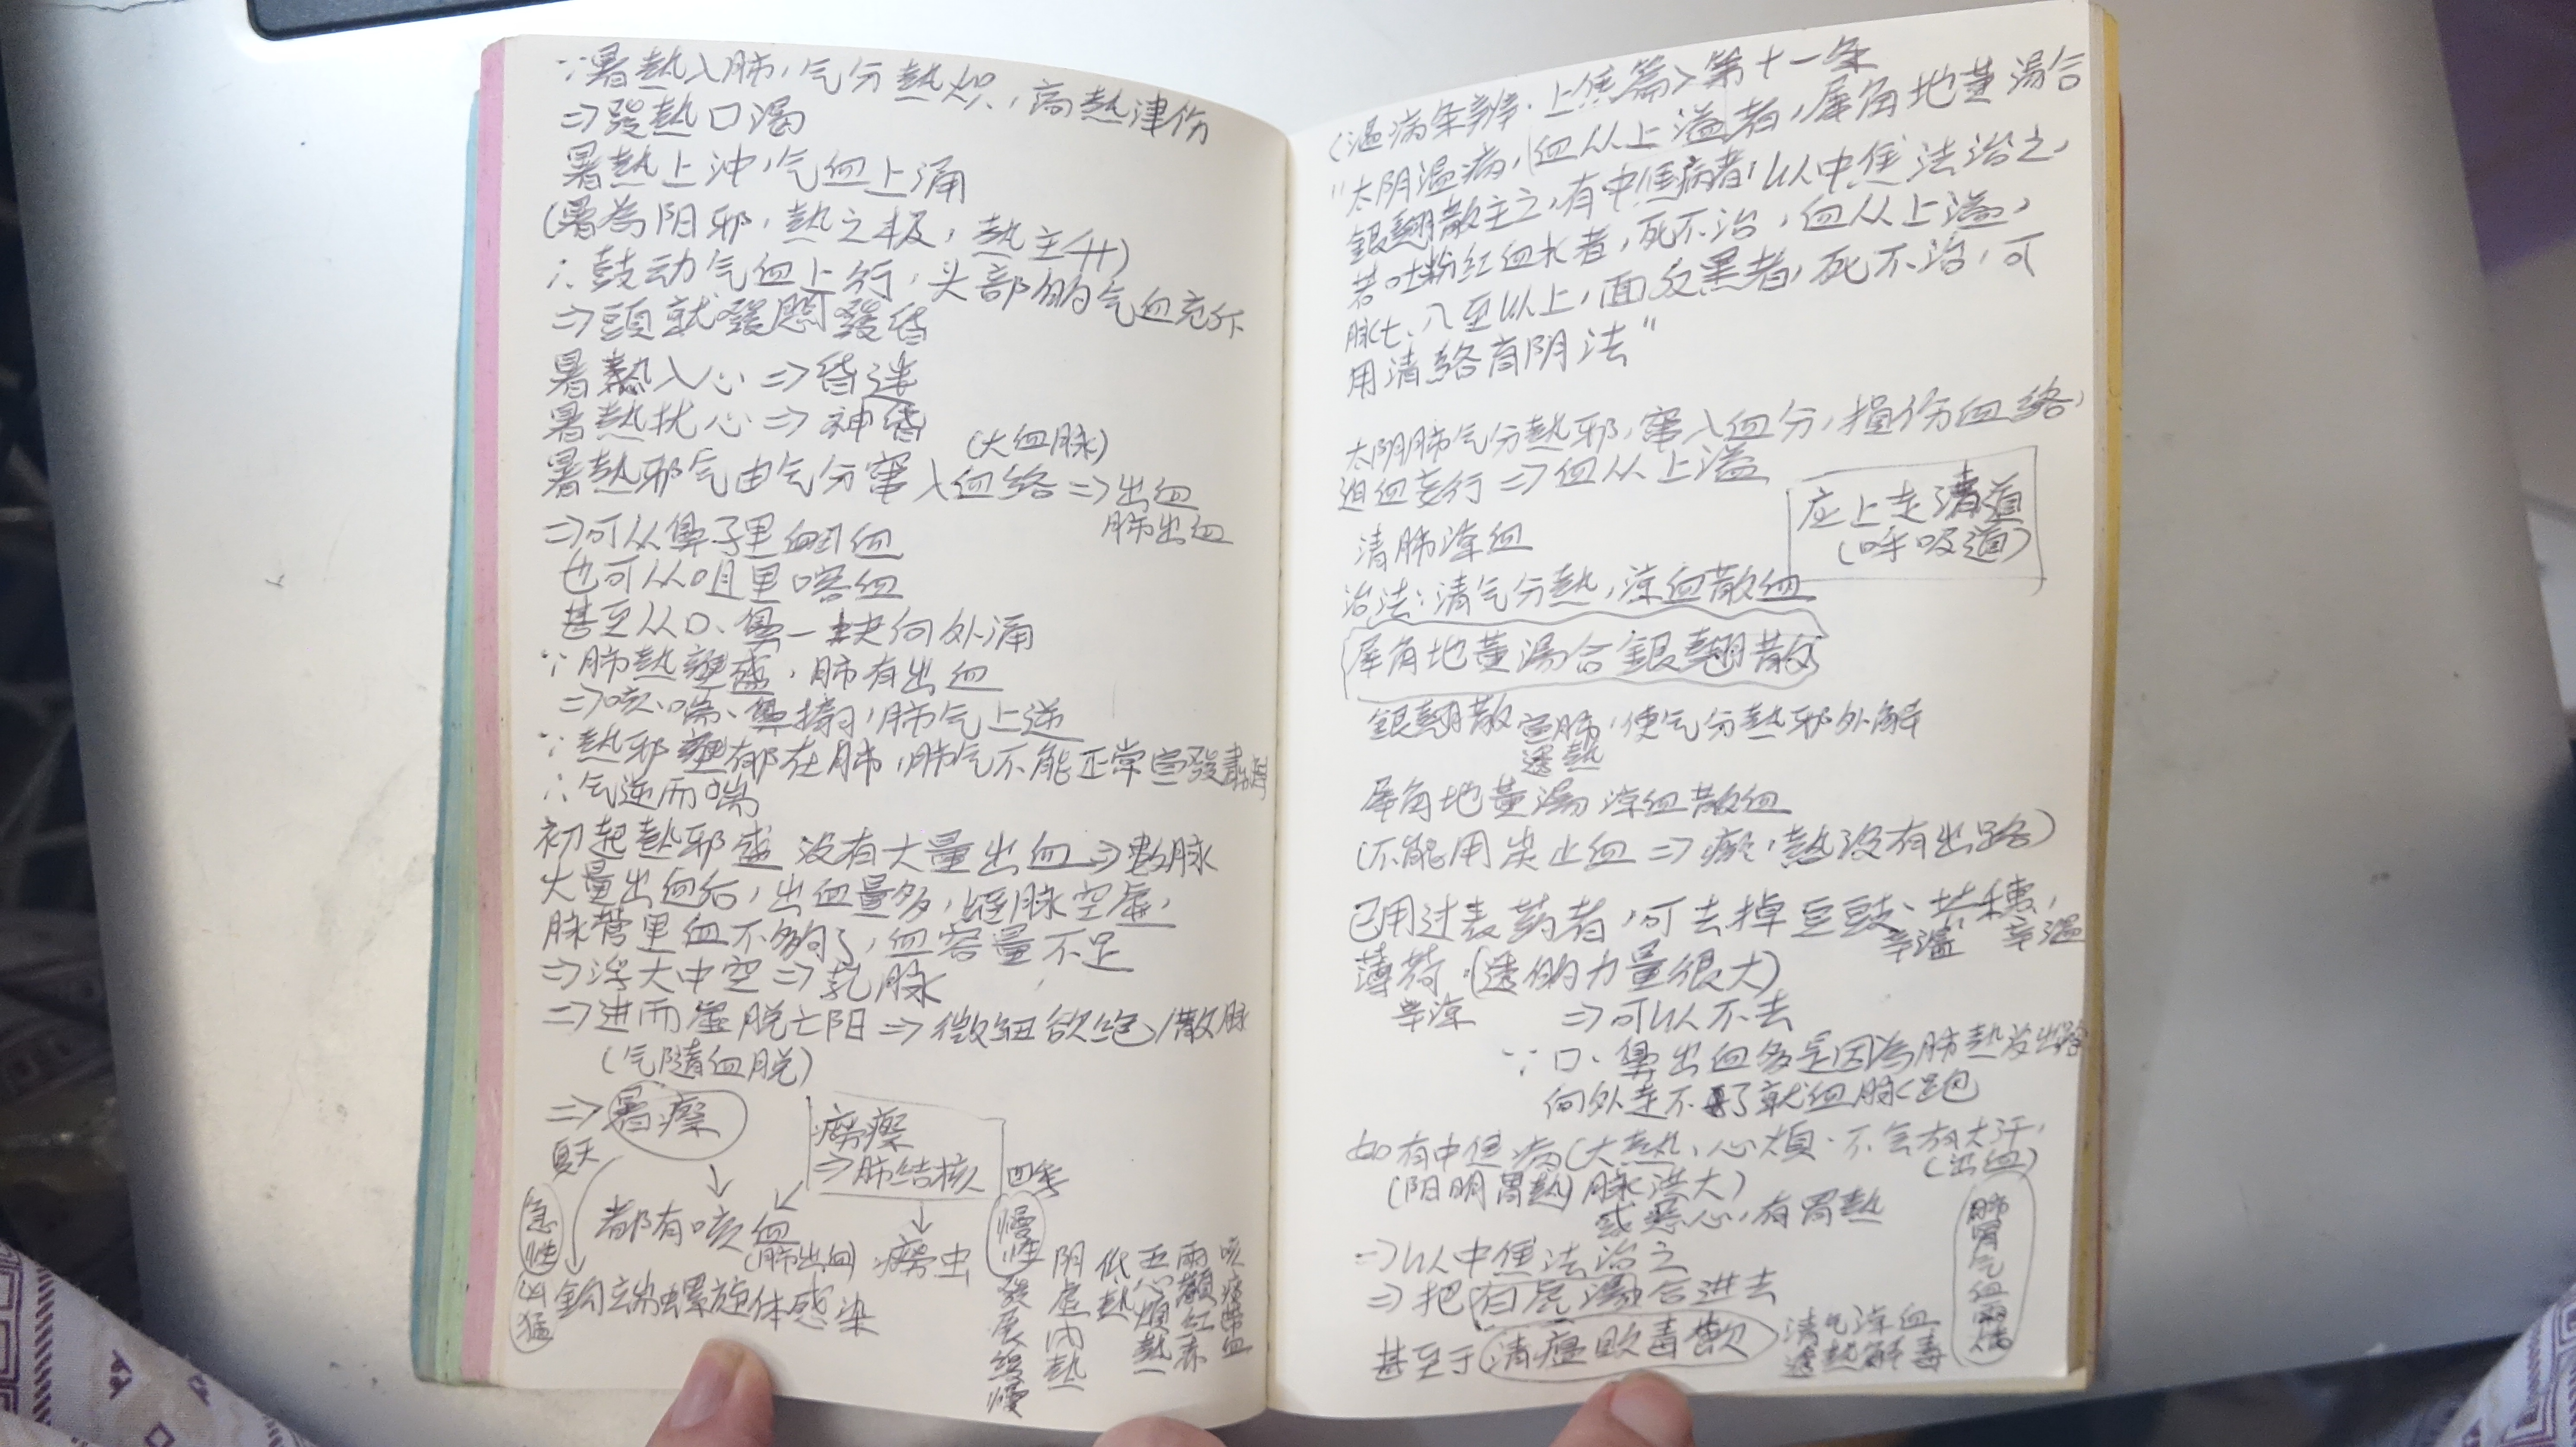 ∵暑熱入肺，气分熱炽，高熱津伤
⇒發熱口渴
暑熱上冲，气血上涌
(暑為阳邪，熱之极，熱主升)
∴鼓动气血上行，头部的气血充斥
⇒頭就發悶發昏
暑熱入心⇒昏迷
暑熱扰心⇒神昏
(大血脉)
暑熱邪气由气分窜入血络⇒出血
肺出血
⇒可从鼻子里衄血
也可从咀里咯血
甚至从口、鼻一块向外涌
∵肺熱壅盛，肺有出血
⇒咳、喘、鼻搧，肺气上逆
∵熱邪壅郁在肺，肺气不能正常宣發肅降
∴气逆而喘
初起熱邪盛 没有大量出血⇒數脉
大量出血后，出血量多，經脉空虚，
脉管里血不够了，血容量不足
⇒浮大中空⇒芤脉
⇒进而虚脱亡阳⇒微细欲绝/散脉
(气隨血脱)
⇒暑瘵
夏天
癆瘵
⇒肺结核
四季
急性
凶猛
都有咳血
(肺出血)
癆虫
慢性
發展缓慢
阴虚内熱
低熱
五心煩熱
兩顴红赤
咳痰带血
钩端螺旋体感染
<温病条辨·上焦篇>第十一条
"太阴温病，血从上溢者，犀角地黄湯合
銀翹散主之，有中焦病者，以中焦法治之，
若吐粉红血水者，死不治，血从上溢，
脉七、八至以上，面反黑者，死不治，可
用清絡育阴法"
太阴肺气分熱邪，窜入血分，損伤血络，
迫血妄行⇒血从上溢
应上走清道
(呼吸道)
清肺凉血
治法：清气分熱，凉血散血
犀角地黄湯合銀翹散
銀翹散宣肺，使气分熱邪外解
透熱
犀角地黄湯凉血散血
(不能用炭止血⇒瘀，熱没有出路)
已用过表药者，可去掉豆豉、芥穗，
辛温 辛温
薄荷(透的力量很大)
辛凉 ⇒可以不去
∵口、鼻出血多是因為肺熱没出路
向外走不了就血脉跑
如有中焦病(大熱、心煩、不会有大汗，
(出血)
(阳明胃熱) 脉洪大)
或恶心，有胃熱
⇒以中焦法治之
⇒把白虎湯合进去
甚至于清瘟敗毒飲
清气凉血
透熱解毒
肺胃气血兩清